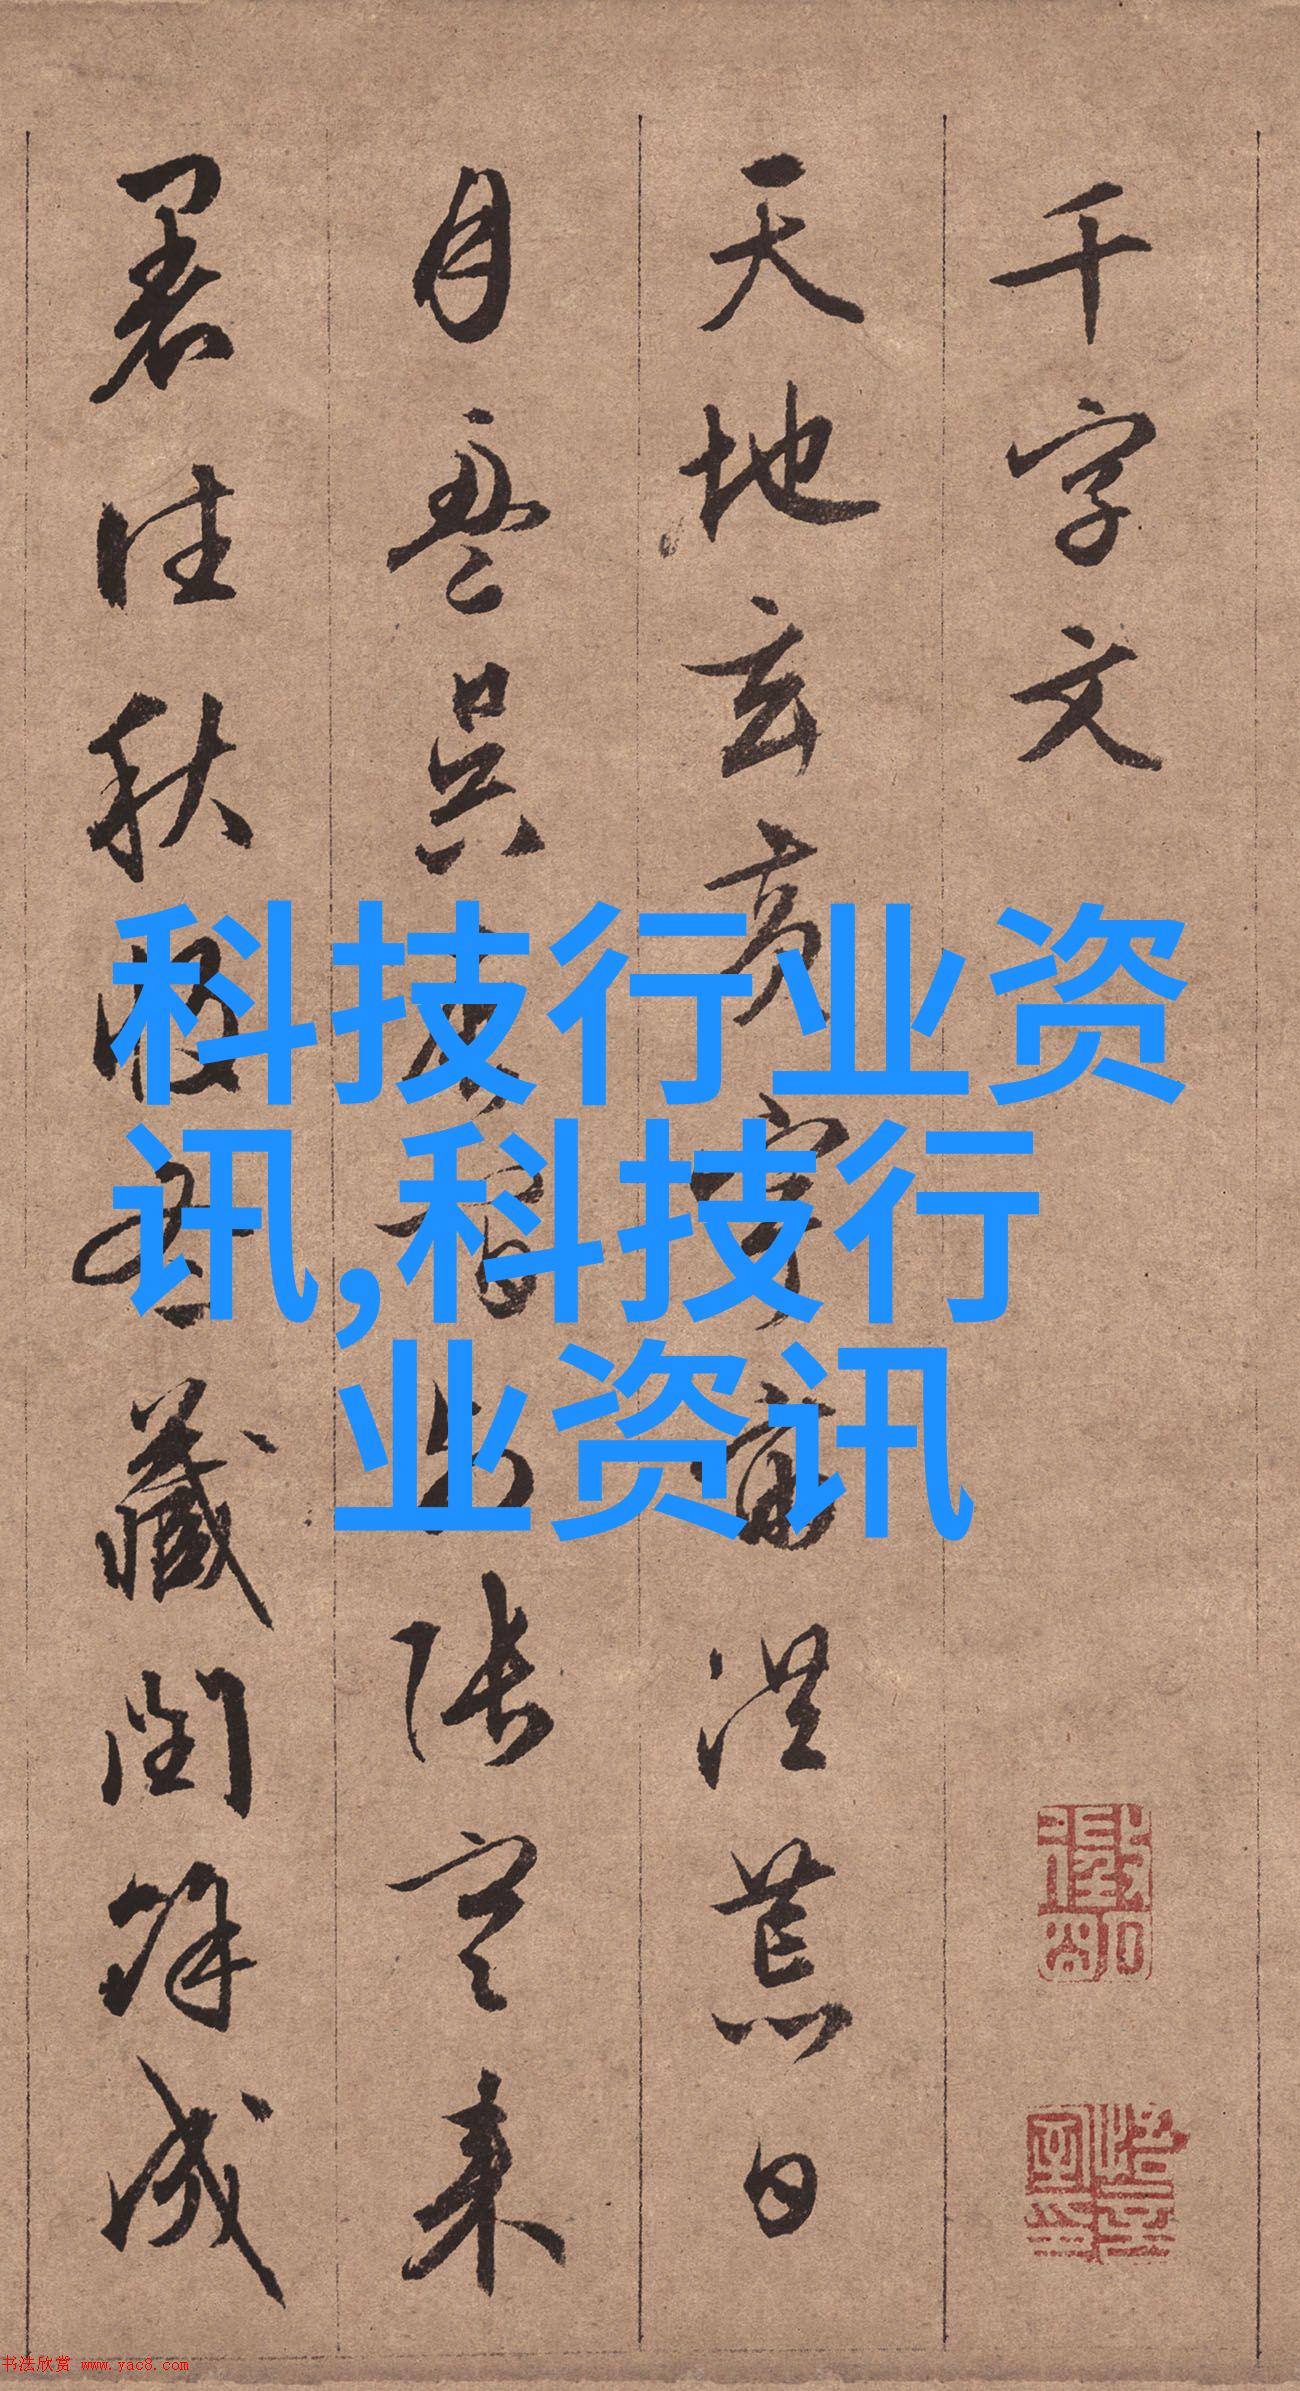 千字文
天地玄黄宇宙洪荒日
月盈昃辰宿列張寒来
暑往秋收冬藏閏餘成
科技行业资
讯,科技行
业资讯
书法欣赏 www.yac8.com